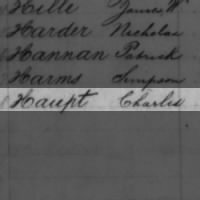 Hille James W.
Harder Nicholas
Hannan Patrick
Harms Simpson
Haupt Charles